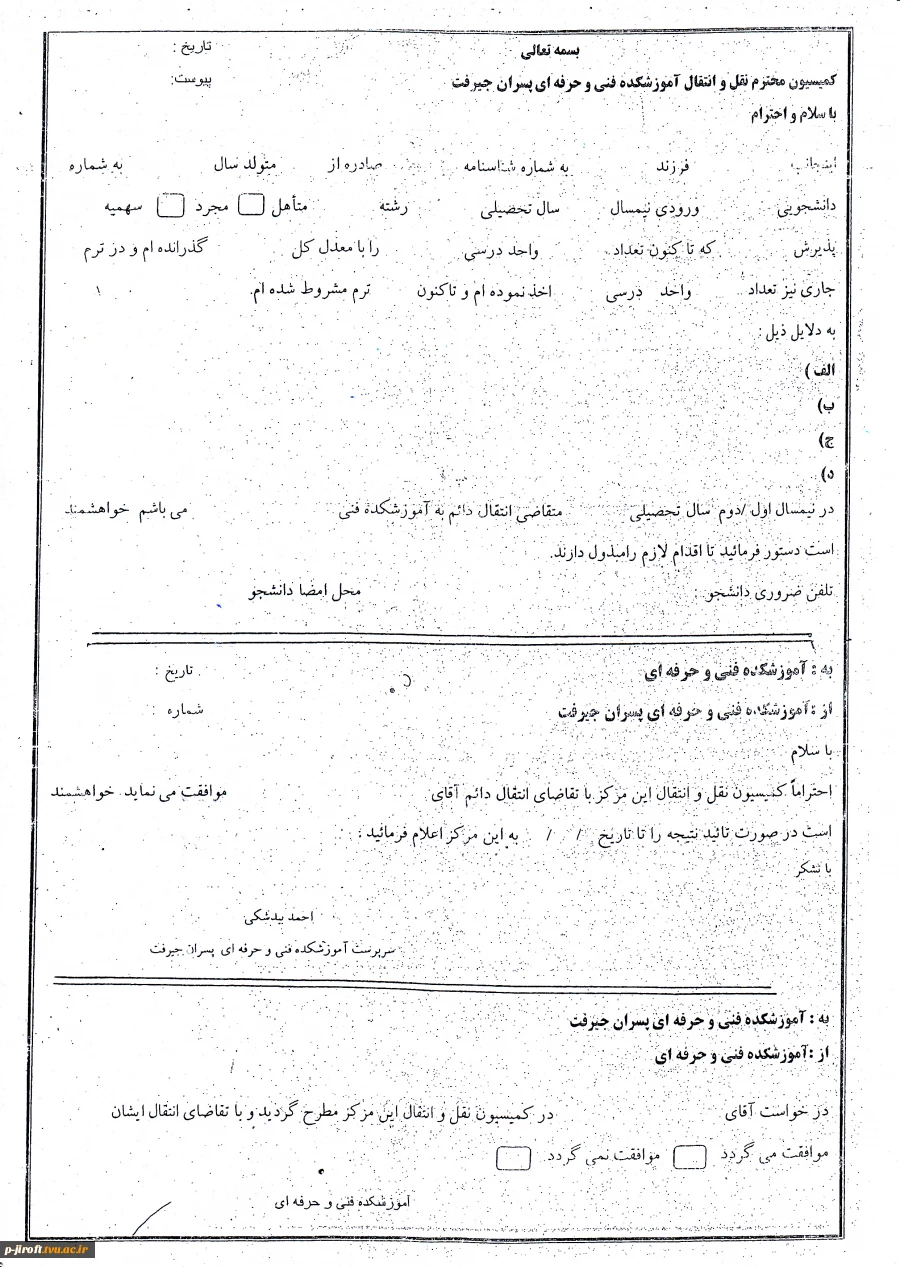 بسمه تعالی
تاریخ :
کمیسیون محترم نقل و انتقال آموزشکده فنی و حرفه ای پسران جیرفت
پیوست:
با سلام و احترام
اینجانب فرزند به شماره شناسنامه صادره از متولد سال به شماره
دانشجویی ورودی نیمسال سال تحصیلی رشته متأهل مجرد سهمیه
پذیرش که تا کنون تعداد واحد درسی را با معدل کل گذرانده ام و در ترم
جاری نیز تعداد واحد درسی اخذ نموده ام و تاکنون ترم مشروط شده ام.
به دلایل ذیل :
الف )
ب)
ج)
د)
در نیمسال اول /دوم سال تحصیلی متقاضی انتقال دائم به آموزشکده فنی می باشم خواهشمند
است دستور فرمائید تا اقدام لازم رامبذول دارند.
تلفن ضروری دانشجو : محل امضا دانشجو
به : آموزشکده فنی و حرفه ای
تاریخ :
از :آموزشکده فنی و حرفه ای پسران جیرفت
شماره :
با سلام
احتراماً کمیسیون نقل و انتقال این مرکز با تقاضای انتقال دائم آقای موافقت می نماید. خواهشمند
است در صورت تائید نتیجه را تا تاریخ / / به این مرکز اعلام فرمائید .
با تشکر
احمد بیدشکی
سرپرست آموزشکده فنی و حرفه ای پسران جیرفت
به : آموزشکده فنی و حرفه ای پسران جیرفت
از :آموزشکده فنی و حرفه ای
در خواست آقای در کمیسیون نقل و انتقال این مرکز مطرح گردید و با تقاضای انتقال ایشان
موافقت می گردد موافقت نمی گردد
آموزشکده فنی و حرفه ای
p-jiroft.tvu.ac.ir